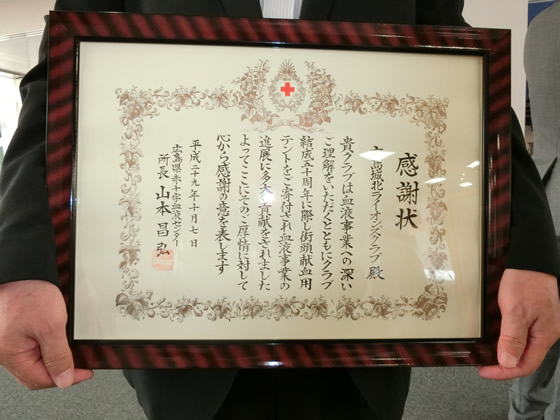 感謝状
広島城北ライオンズクラブ 殿
貴クラブは血液事業への深い
ご理解をいただくとともにクラブ
結成五十周年に際し街頭献血用
テントをご寄付され血液事業の
進展に多大な貢献をされました
よってここにそのご厚情に対して
心から感謝の意を表します
平成二十九年十月七日
広島県赤十字血液センター
所長 山本昌弘